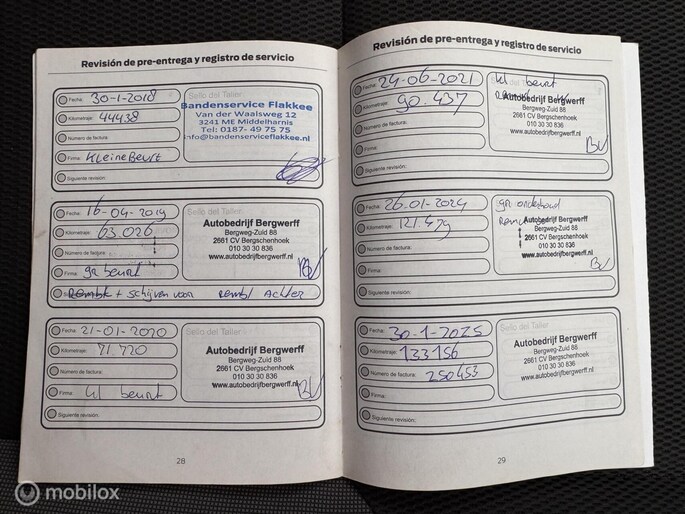 Revisión de pre-entrega y registro de servicio
Fecha: 30-1-2018
Kilometraje: 44438
Número de factura:
Firma: Kleine Beurt
Siguiente revisión:
Sello del Taller
Bandenservice Flakkee
Van der Waalsweg 12
3241 ME Middelharnis
Tel: 0187- 49 75 75
info@bandenserviceflakkee.nl
Fecha: 16-04-2019
Kilometraje: 63.026
Número de factura:
Firma: gr beurt
Remblk + schijven voor Rembl Achter
Sello del Taller
Autobedrijf Bergwerff
Bergweg-Zuid 88
2661 CV Bergschenhoek
010 30 30 836
www.autobedrijfbergwerff.nl
Fecha: 21-01-2020
Kilometraje: 71.720
Número de factura:
Firma: kl beurt
Siguiente revisión:
Sello del Taller
Autobedrijf Bergwerff
Bergweg-Zuid 88
2661 CV Bergschenhoek
010 30 30 836
www.autobedrijfbergwerff.nl
28
Revisión de pre-entrega y registro de servicio
Fecha: 24-06-2021
Kilometraje: 90.437
Número de factura:
Firma:
Siguiente revisión:
kl beurt
Autobedrijf Bergwerff
Bergweg-Zuid 88
2661 CV Bergschenhoek
010 30 30 836
www.autobedrijfbergwerff.nl
Fecha: 26-01-2024
Kilometraje: 121.479
Número de factura:
Firma:
Siguiente revisión:
gr onderhoud
Autobedrijf Bergwerff
Bergweg-Zuid 88
2661 CV Bergschenhoek
010 30 30 836
www.autobedrijfbergwerff.nl
Fecha: 30-1-2025
Kilometraje: 133156
Número de factura: 250453
Firma:
Siguiente revisión:
Sello del Taller
Autobedrijf Bergwerff
Bergweg-Zuid 88
2661 CV Bergschenhoek
010 30 30 836
www.autobedrijfbergwerff.nl
29
mobilox